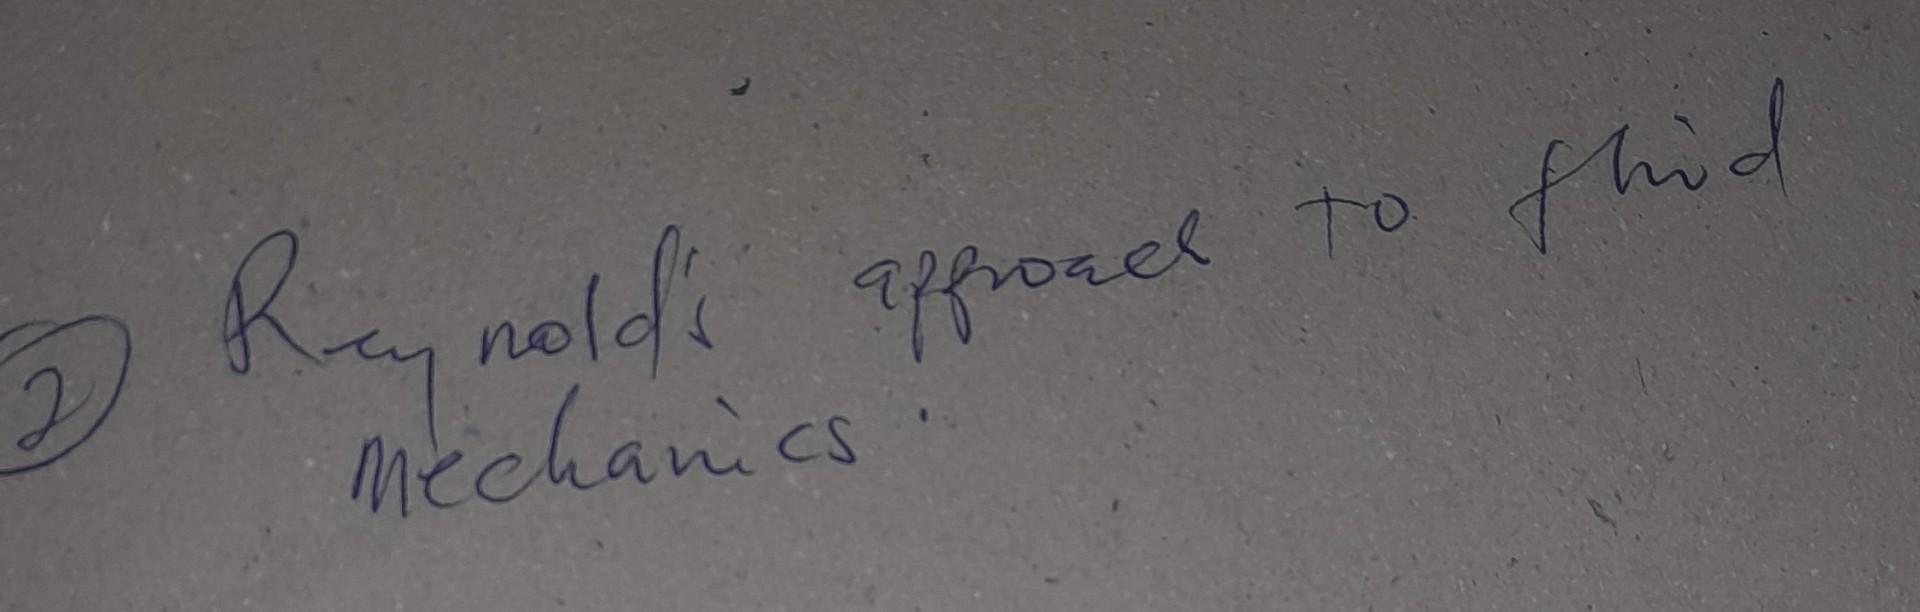 ② Reynold's approach to fluid
Mechanics.